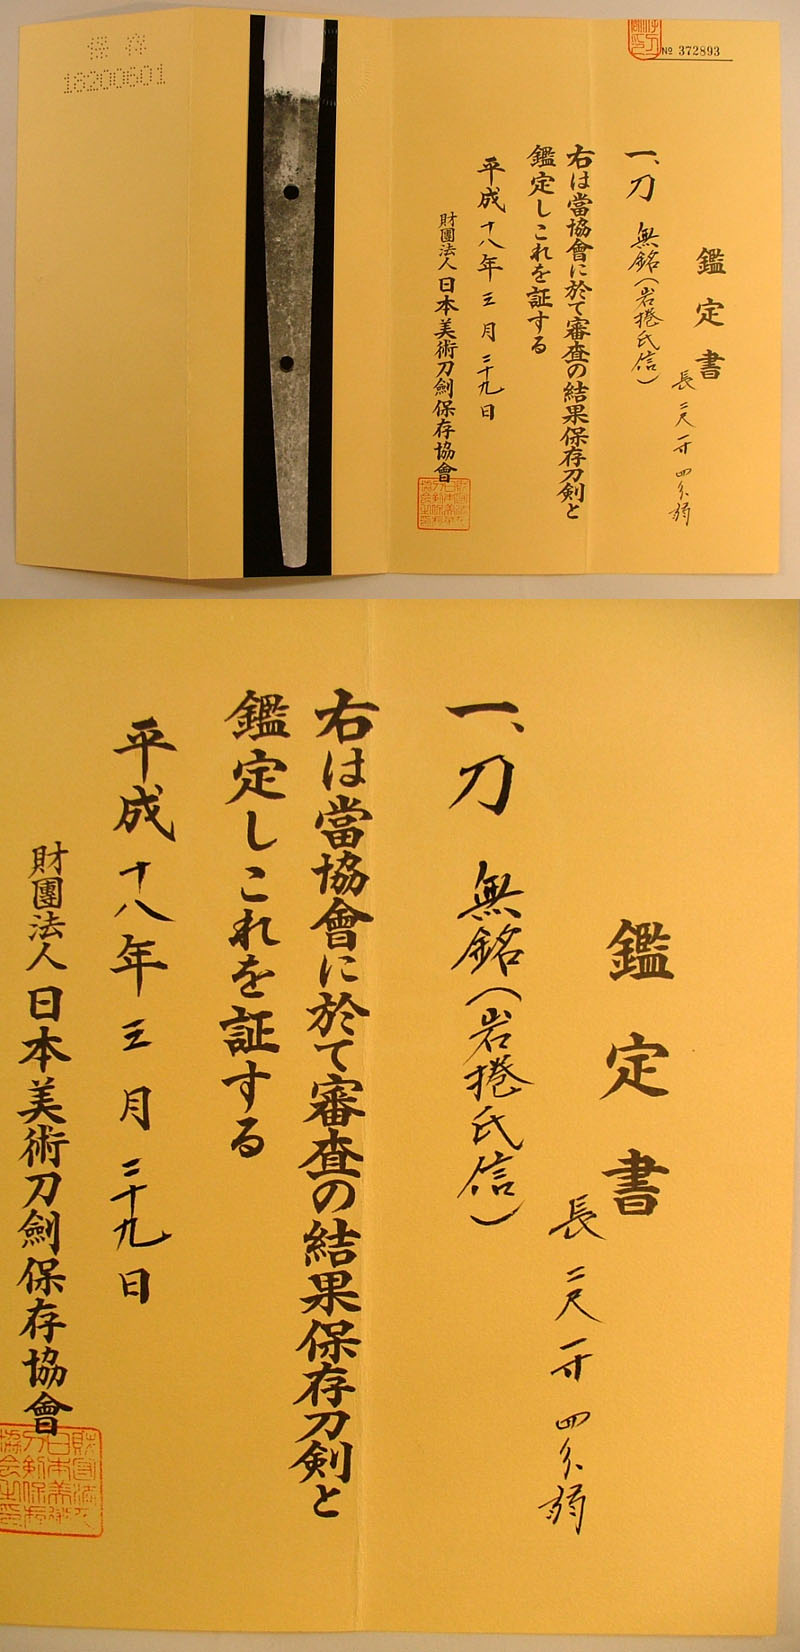 保存
18200601
№ 372893
鑑定書
長 二尺 一寸 四分弱
一、刀 無銘(岩捲氏信)
右は當協會に於て審査の結果保存刀剣と
鑑定しこれを証する
平成十八年三月二十九日
財團法人日本美術刀劍保存協會
鑑定書
長 二尺 一寸 四分弱
一、刀 無銘(岩捲氏信)
右は當協會に於て審査の結果保存刀剣と
鑑定しこれを証する
平成十八年三月二十九日
財團法人日本美術刀劍保存協會